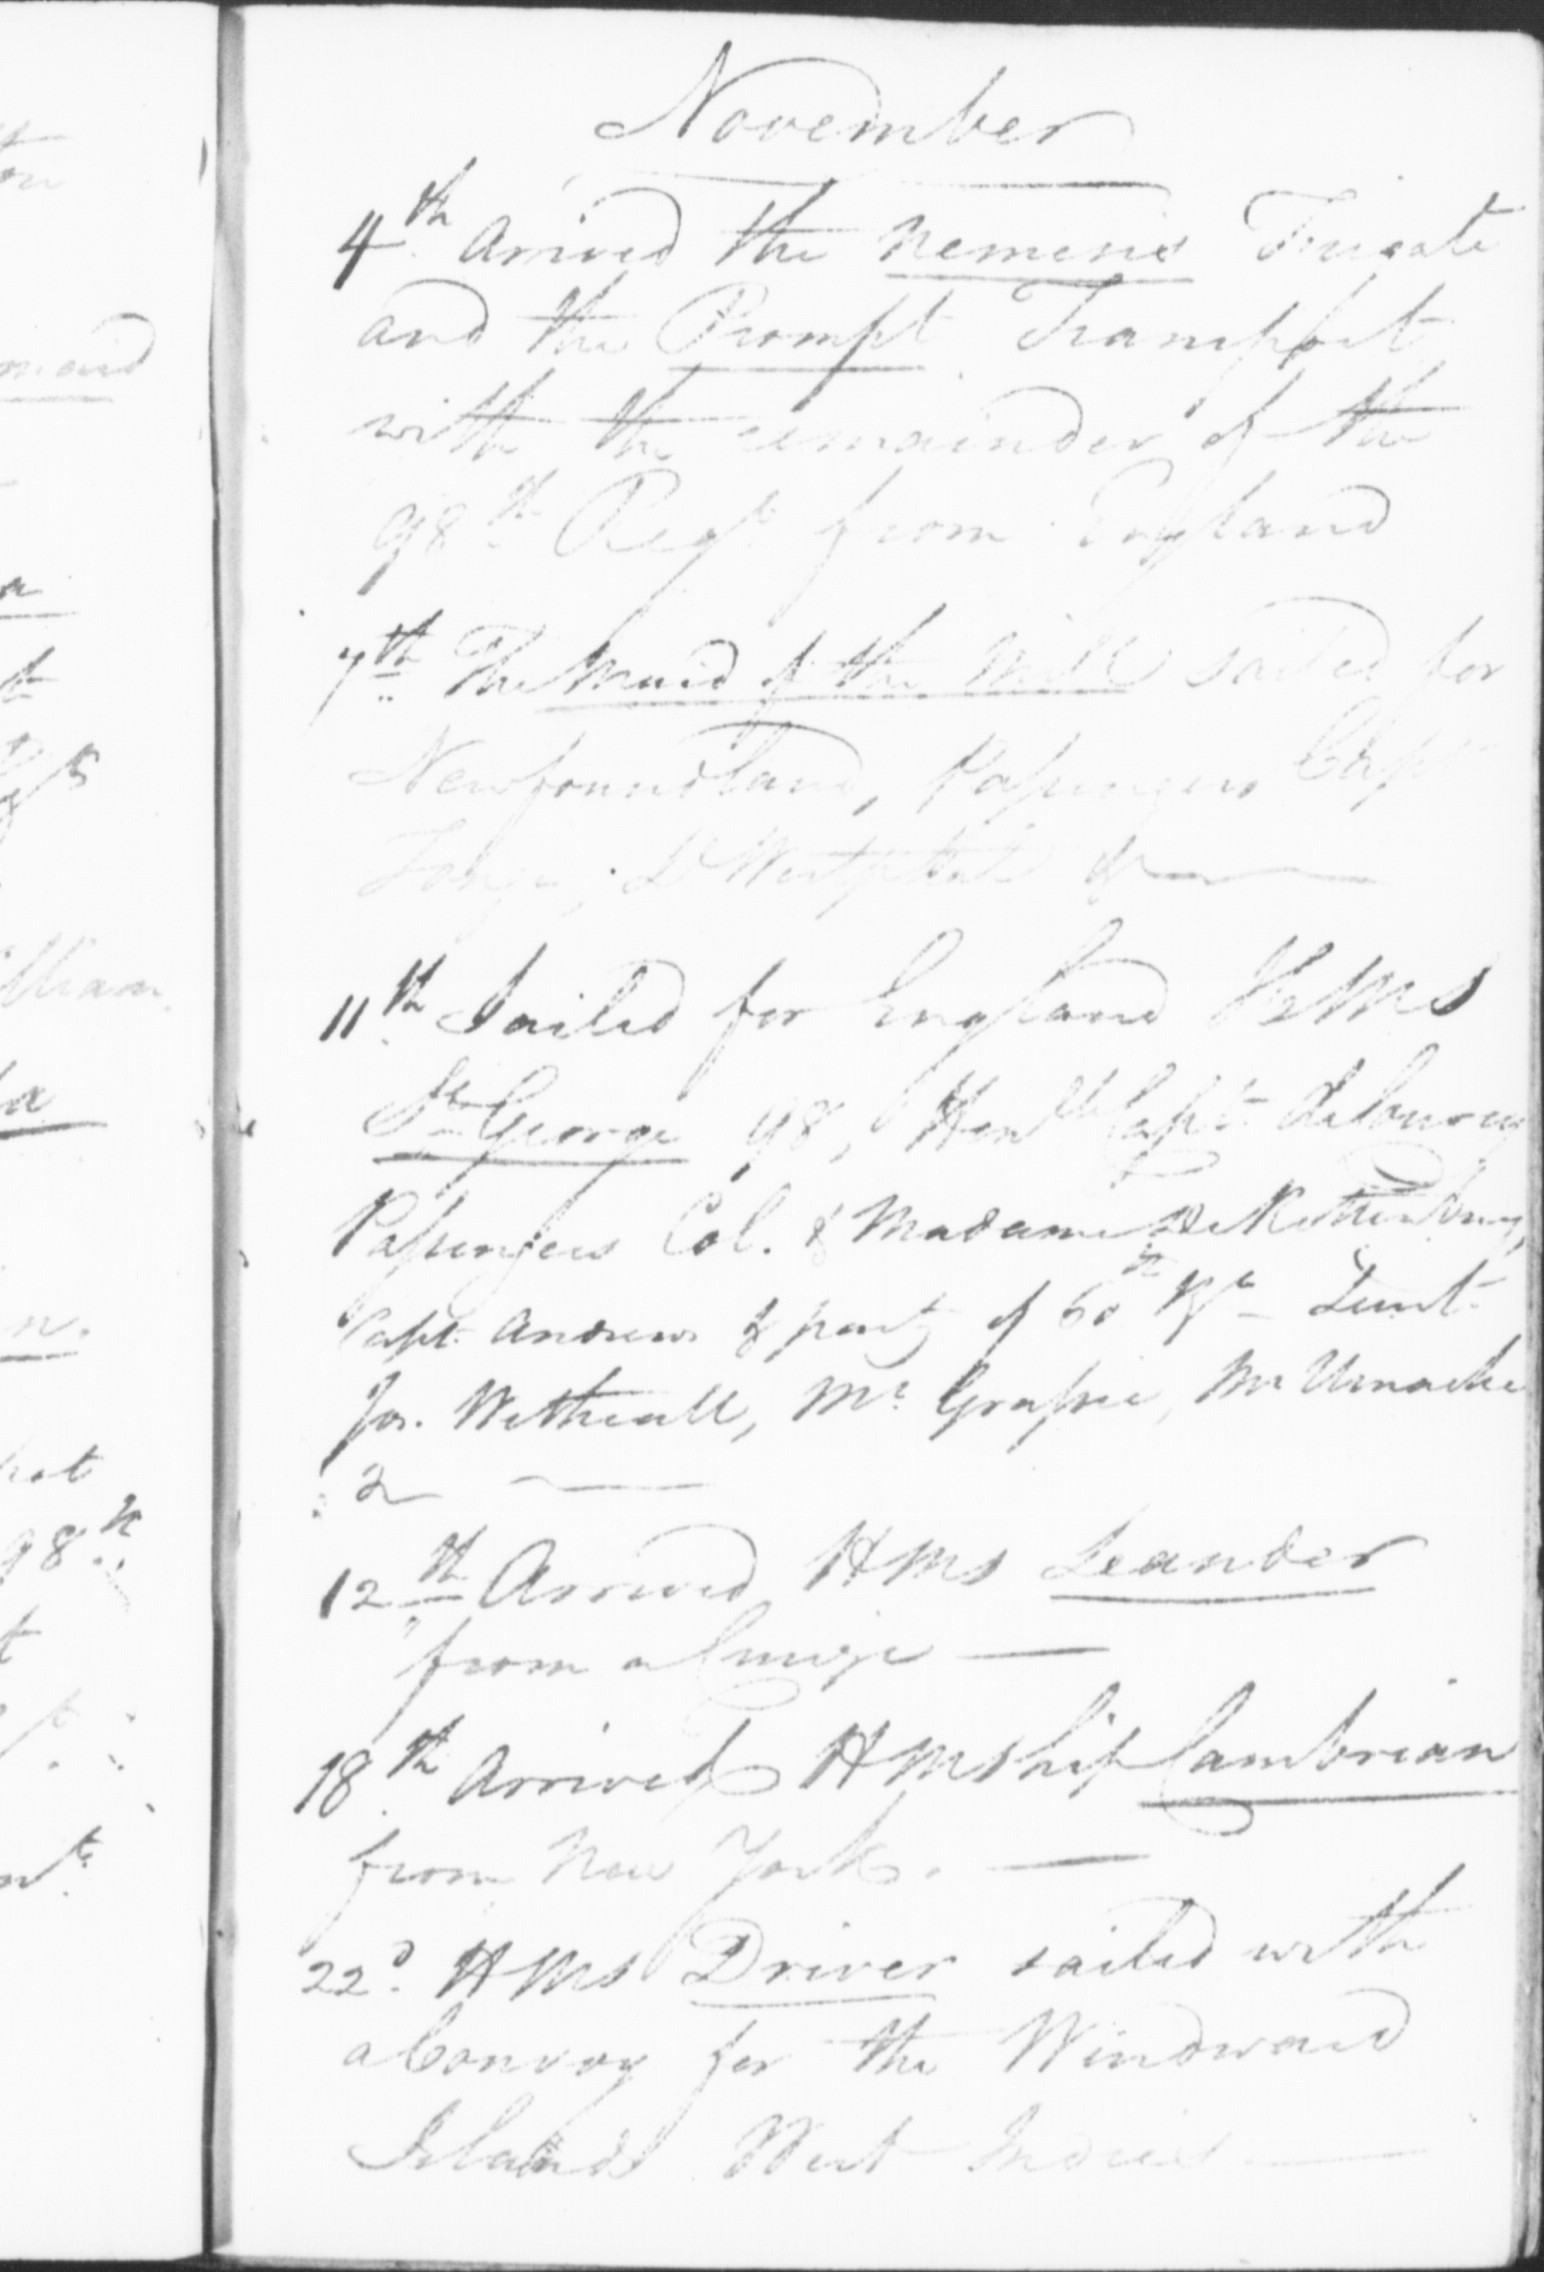 November
4th Arrived the Nemesis Frigate
and the Prompt Transport
with the remainder of the
98th Regt from England
7th The Maid of the Mill sailed for
Newfoundland, Passengers Capt
Dr Westphal &
11th Sailed for England HMS
St George 98, Honble Capt
Passengers Col. & Madame De Rottenburg,
Capt. Andrews & party of 60th Rt Lieut.
Jas. Wetherall, Mr. Grassie, Mr Uniacke
&
12th Arrived HMS Leander
from a Cruize
18th Arrived HM Ship Cambrian
from New York.
22d. HMS Driver sailed with
a Convoy for the Windward
Islands West Indies
on
maid
a
t
lliam
n.
98th
t